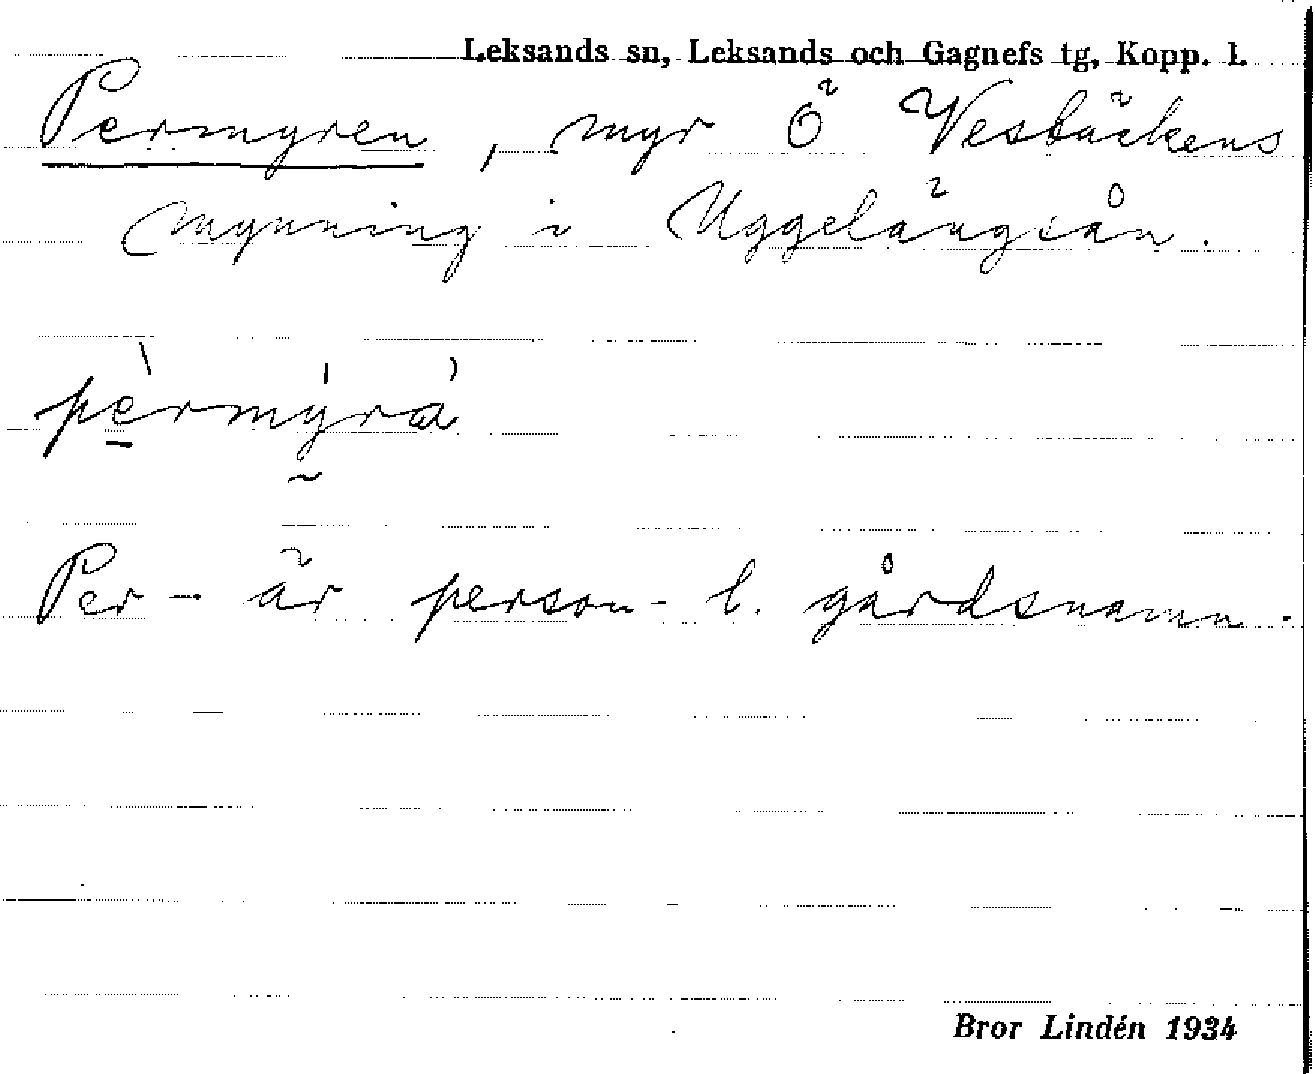 Leksands sn, Leksands och Gagnefs tg, Kopp. l.
Permyren, myr Ö Vesbäckens
mynning i Uggelängsån.
pèrmýrá
Per- är person- l. gårdsnamn.
Bror Lindén 1934